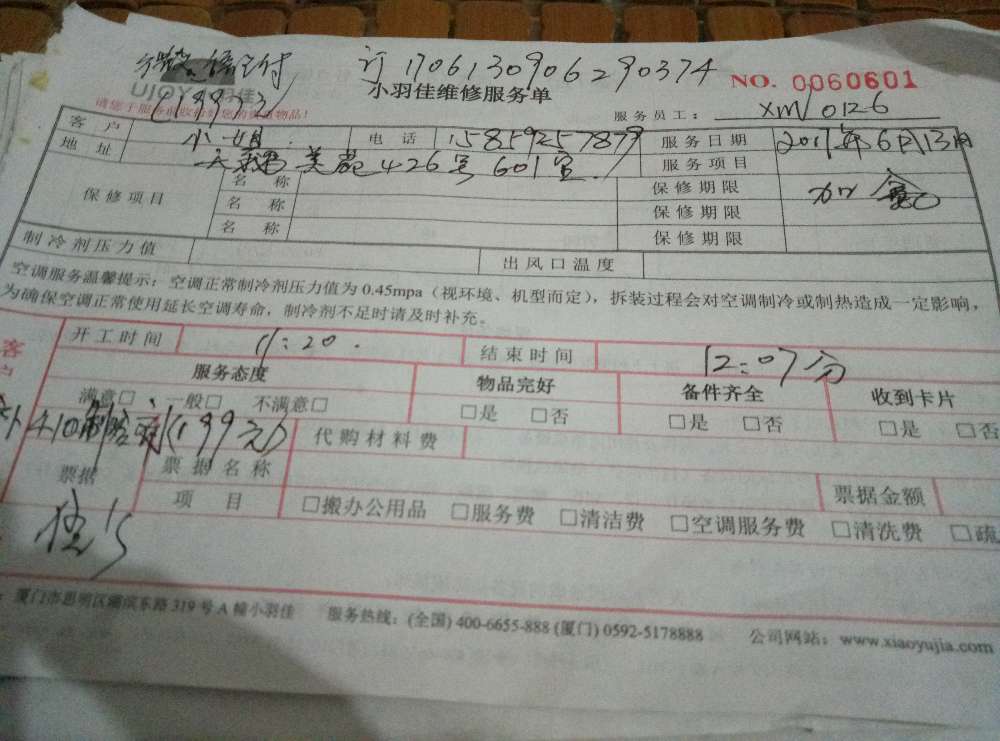 微信支付 订 1706130906290374
UJOY 小羽佳 (199元) 小羽佳维修服务单 NO. 0060601
服务员工: XM/0126
客户 小姐 电话 15859257879 服务日期 2017年6月13日
地址 美苑426号601室 服务项目 加氟
保修项目 名称 保修期限
名称 保修期限
名称 保修期限
制冷剂压力值 出风口温度
空调服务温馨提示:空调正常制冷剂压力值为0.45mpa(视环境、机型而定),拆装过程会对空调制冷或制热造成一定影响,
为确保空调正常使用延长空调寿命,制冷剂不足时请及时补充。
开工时间 11:20. 结束时间 12:07分
服务态度 物品完好 备件齐全 收到卡片
满意□ 一般□ 不满意□ □是 □否 □是 □否 □是 □否
410 (199元) 代购材料费
票据 票据名称 票据金额
项目 □搬办公用品 □服务费 □清洁费 □空调服务费 □清洗费 □疏
厦门市思明区湖滨东路319号A幢小羽佳 服务热线:(全国) 400-6655-888 (厦门) 0592-5178888 公司网站:www.xiaoyujia.com